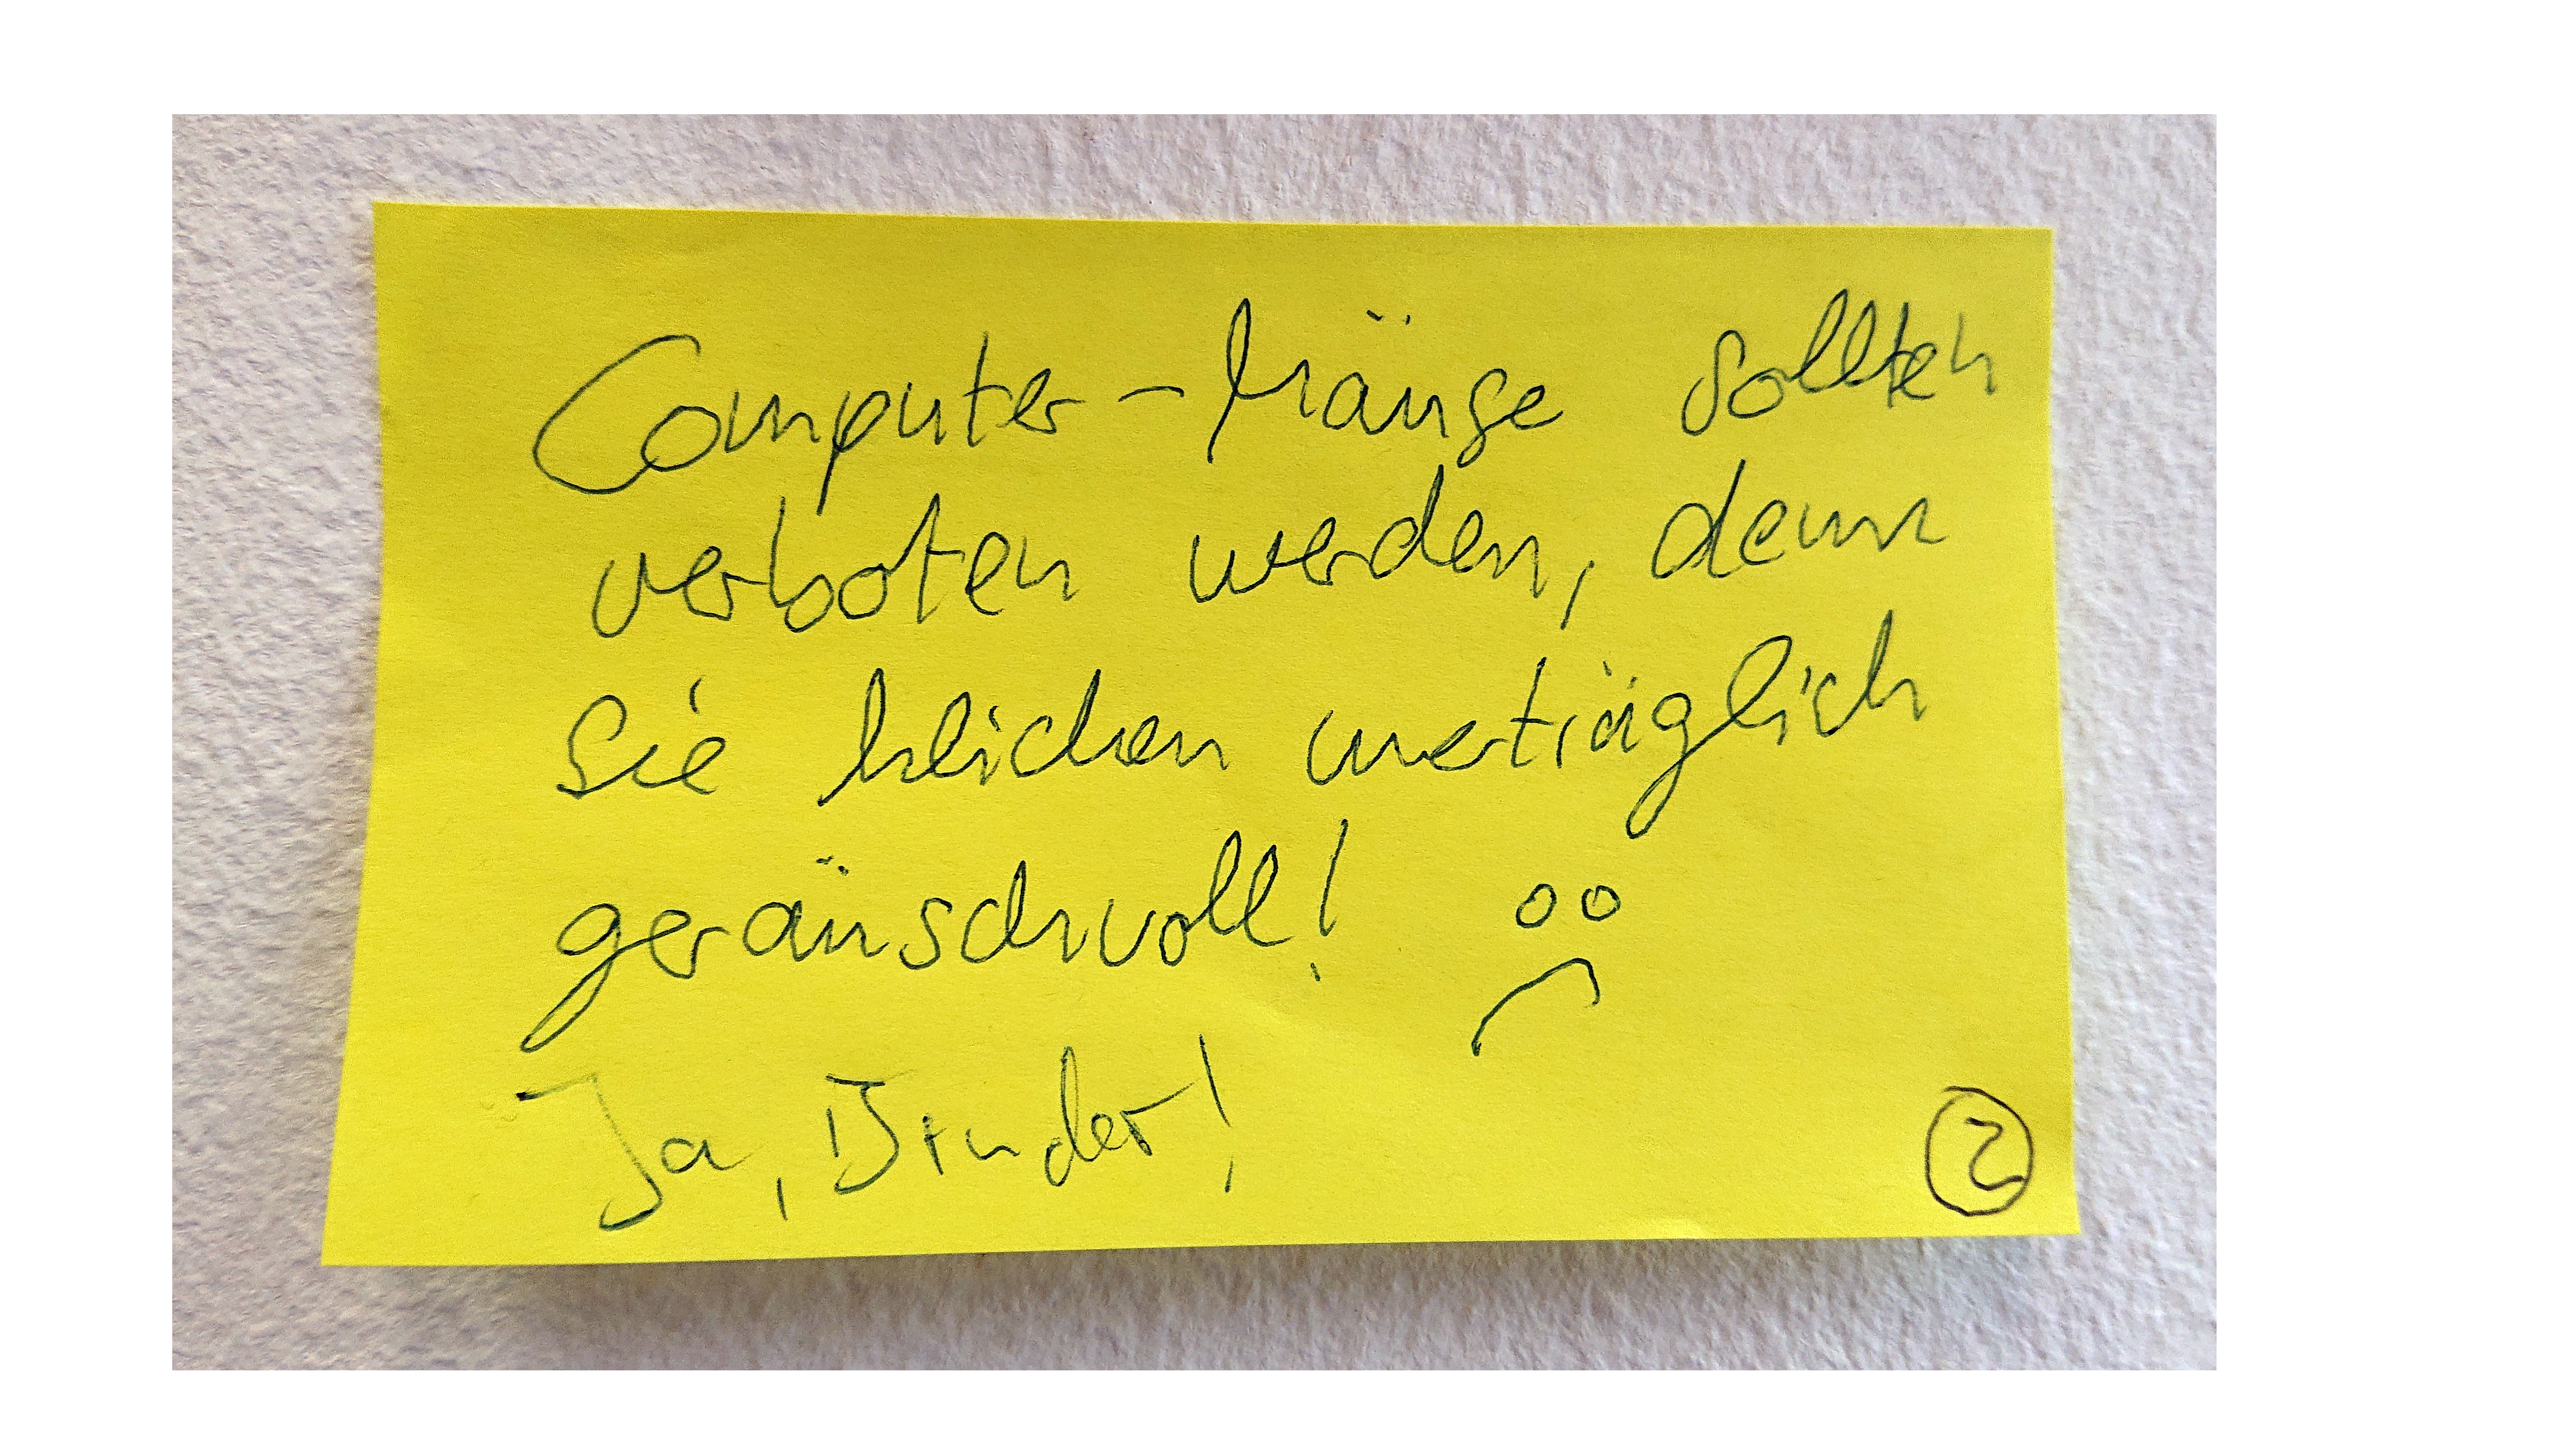 Computer-Mäuse sollten
verboten werden, denn
sie klicken unerträglich
geräuschvoll!
Ja, Bruder!
2